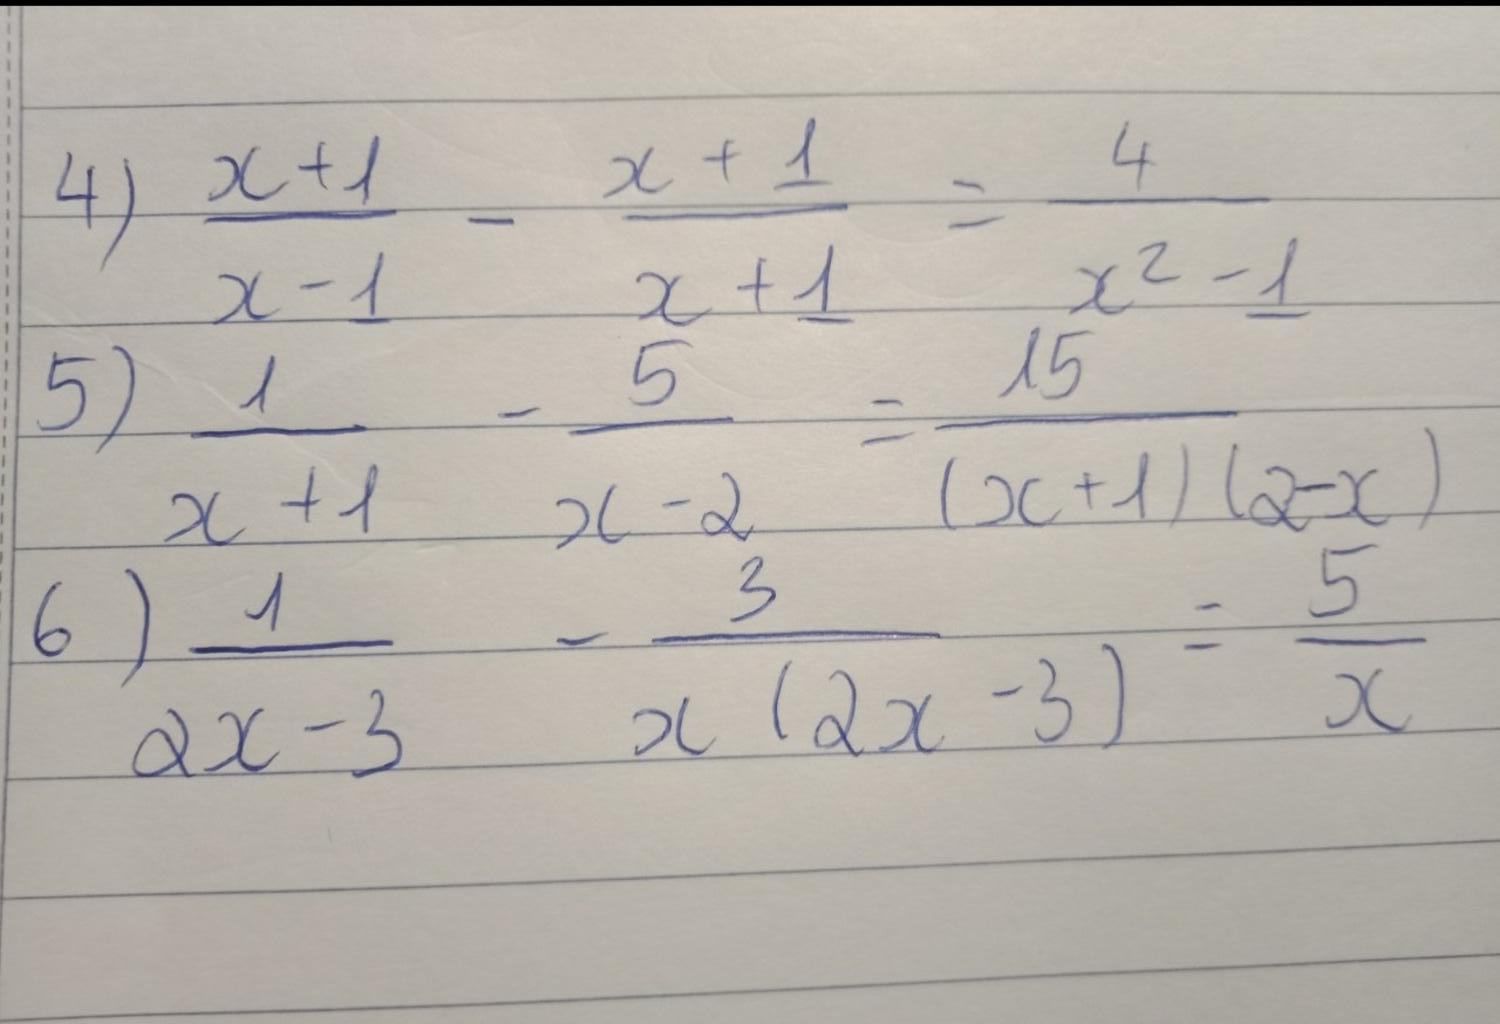 4) (x+1)/(x-1) - (x+1)/(x+1) = 4/(x²-1)
5) 1/(x+1) - 5/(x-2) = 15/((x+1)(2-x))
6) 1/(2x-3) - 3/(x(2x-3)) = 5/x